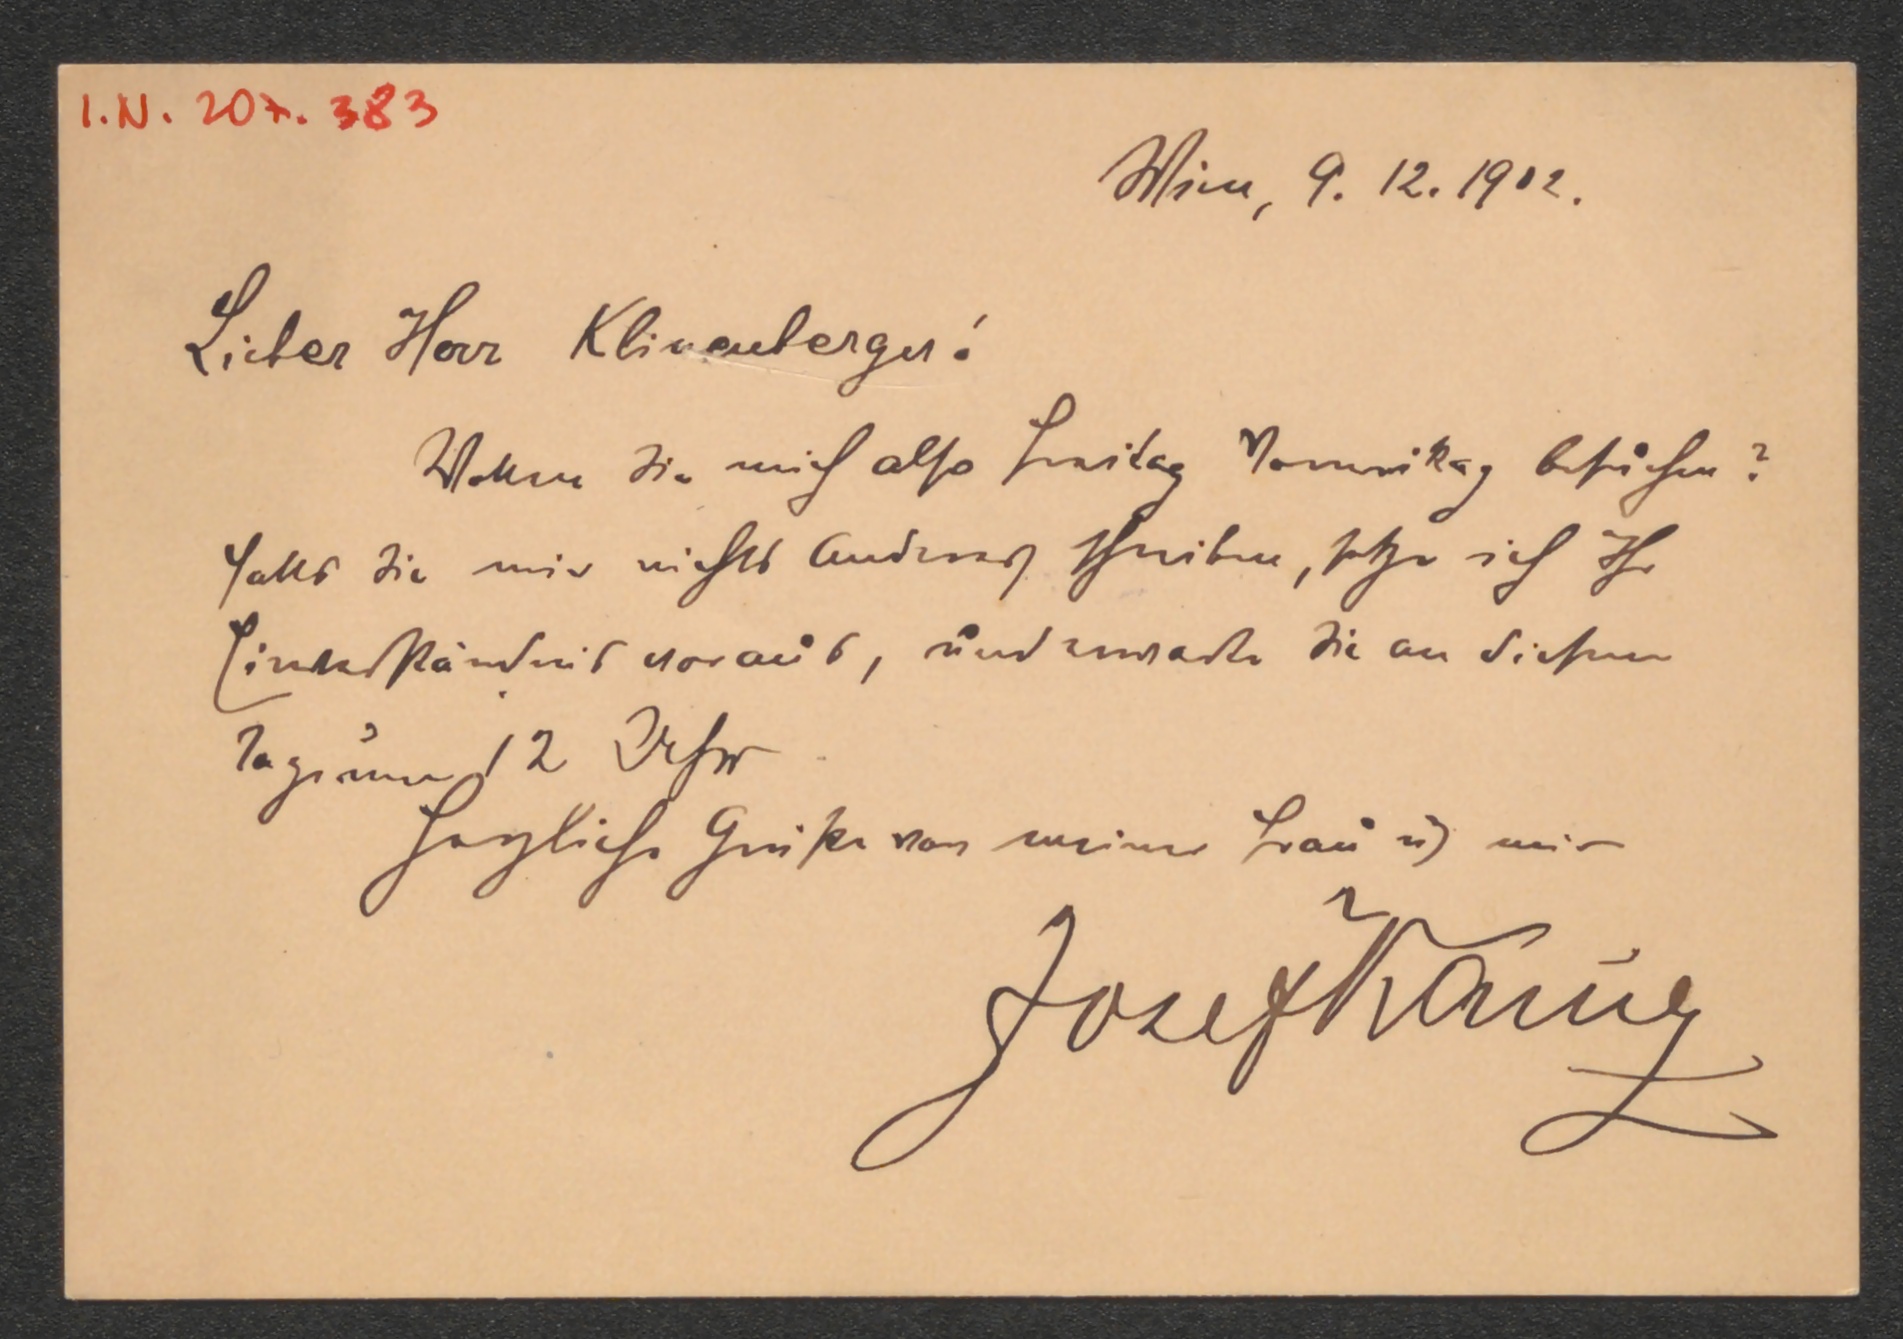 I.N. 207.383
Wien, 9. 12. 1902.
Lieber Herr Klinenberger!
Wollen Sie mich also Freitag Vormittag besuchen?
Falls Sie mir nichts Anderes schreiben, setze ich Ihr
Einverständnis voraus, und erwarte Sie an diesem
Tage um 12 Uhr
Herzliche Grüße von meiner Frau u) mir
Josef